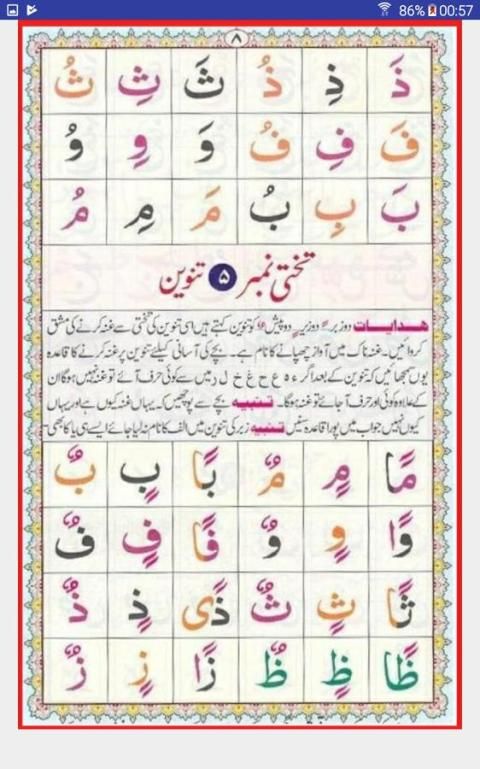 86% 00:57
۸
ذَ ذِ ذُ ثَ ثِ ثُ
فَ فِ فُ وَ وِ وُ
بَ بِ بُ مَ مِ مُ
تختی نمبر ۵ تنوین
ھدایات دو زبر ً دو زیر ٍ دو پیش ٌ کو تنوین کہتے ہیں اسی تنوین کی تختی سے غنہ کرنے کی مشق
کروائیں۔ غنہ ناک میں آواز چھپانے کا نام ہے۔ بچے کی آسانی کیلئے تنوین پر غنہ کرنے کا قاعدہ
یوں سمجھائیں کہ تنوین کے بعد اگر ء ہ ع ح غ خ ل ر میں سے کوئی حرف آئے تو غنہ نہیں ہوگا ان
کے علاوہ کوئی اور حرف آ جائے تو غنہ ہوگا۔ تنبیہ بچے سے پوچھیں کہ یہاں غنہ کیوں ہے اور یہاں
کیوں نہیں جواب میں پورا قاعدہ سنیں تنبیہ زبر کی تنوین میں الف کا نام نہ لیا جائے ایسے ہی یا کا بھی
مًا مٍ مٌ بًا بٍ بٌ
وًا وٍ وٌ فًا فٍ فٌ
ثًا ثٍ ثٌ ذًى ذٍ ذٌ
ظًا ظٍ ظٌ زًا زٍ زٌ